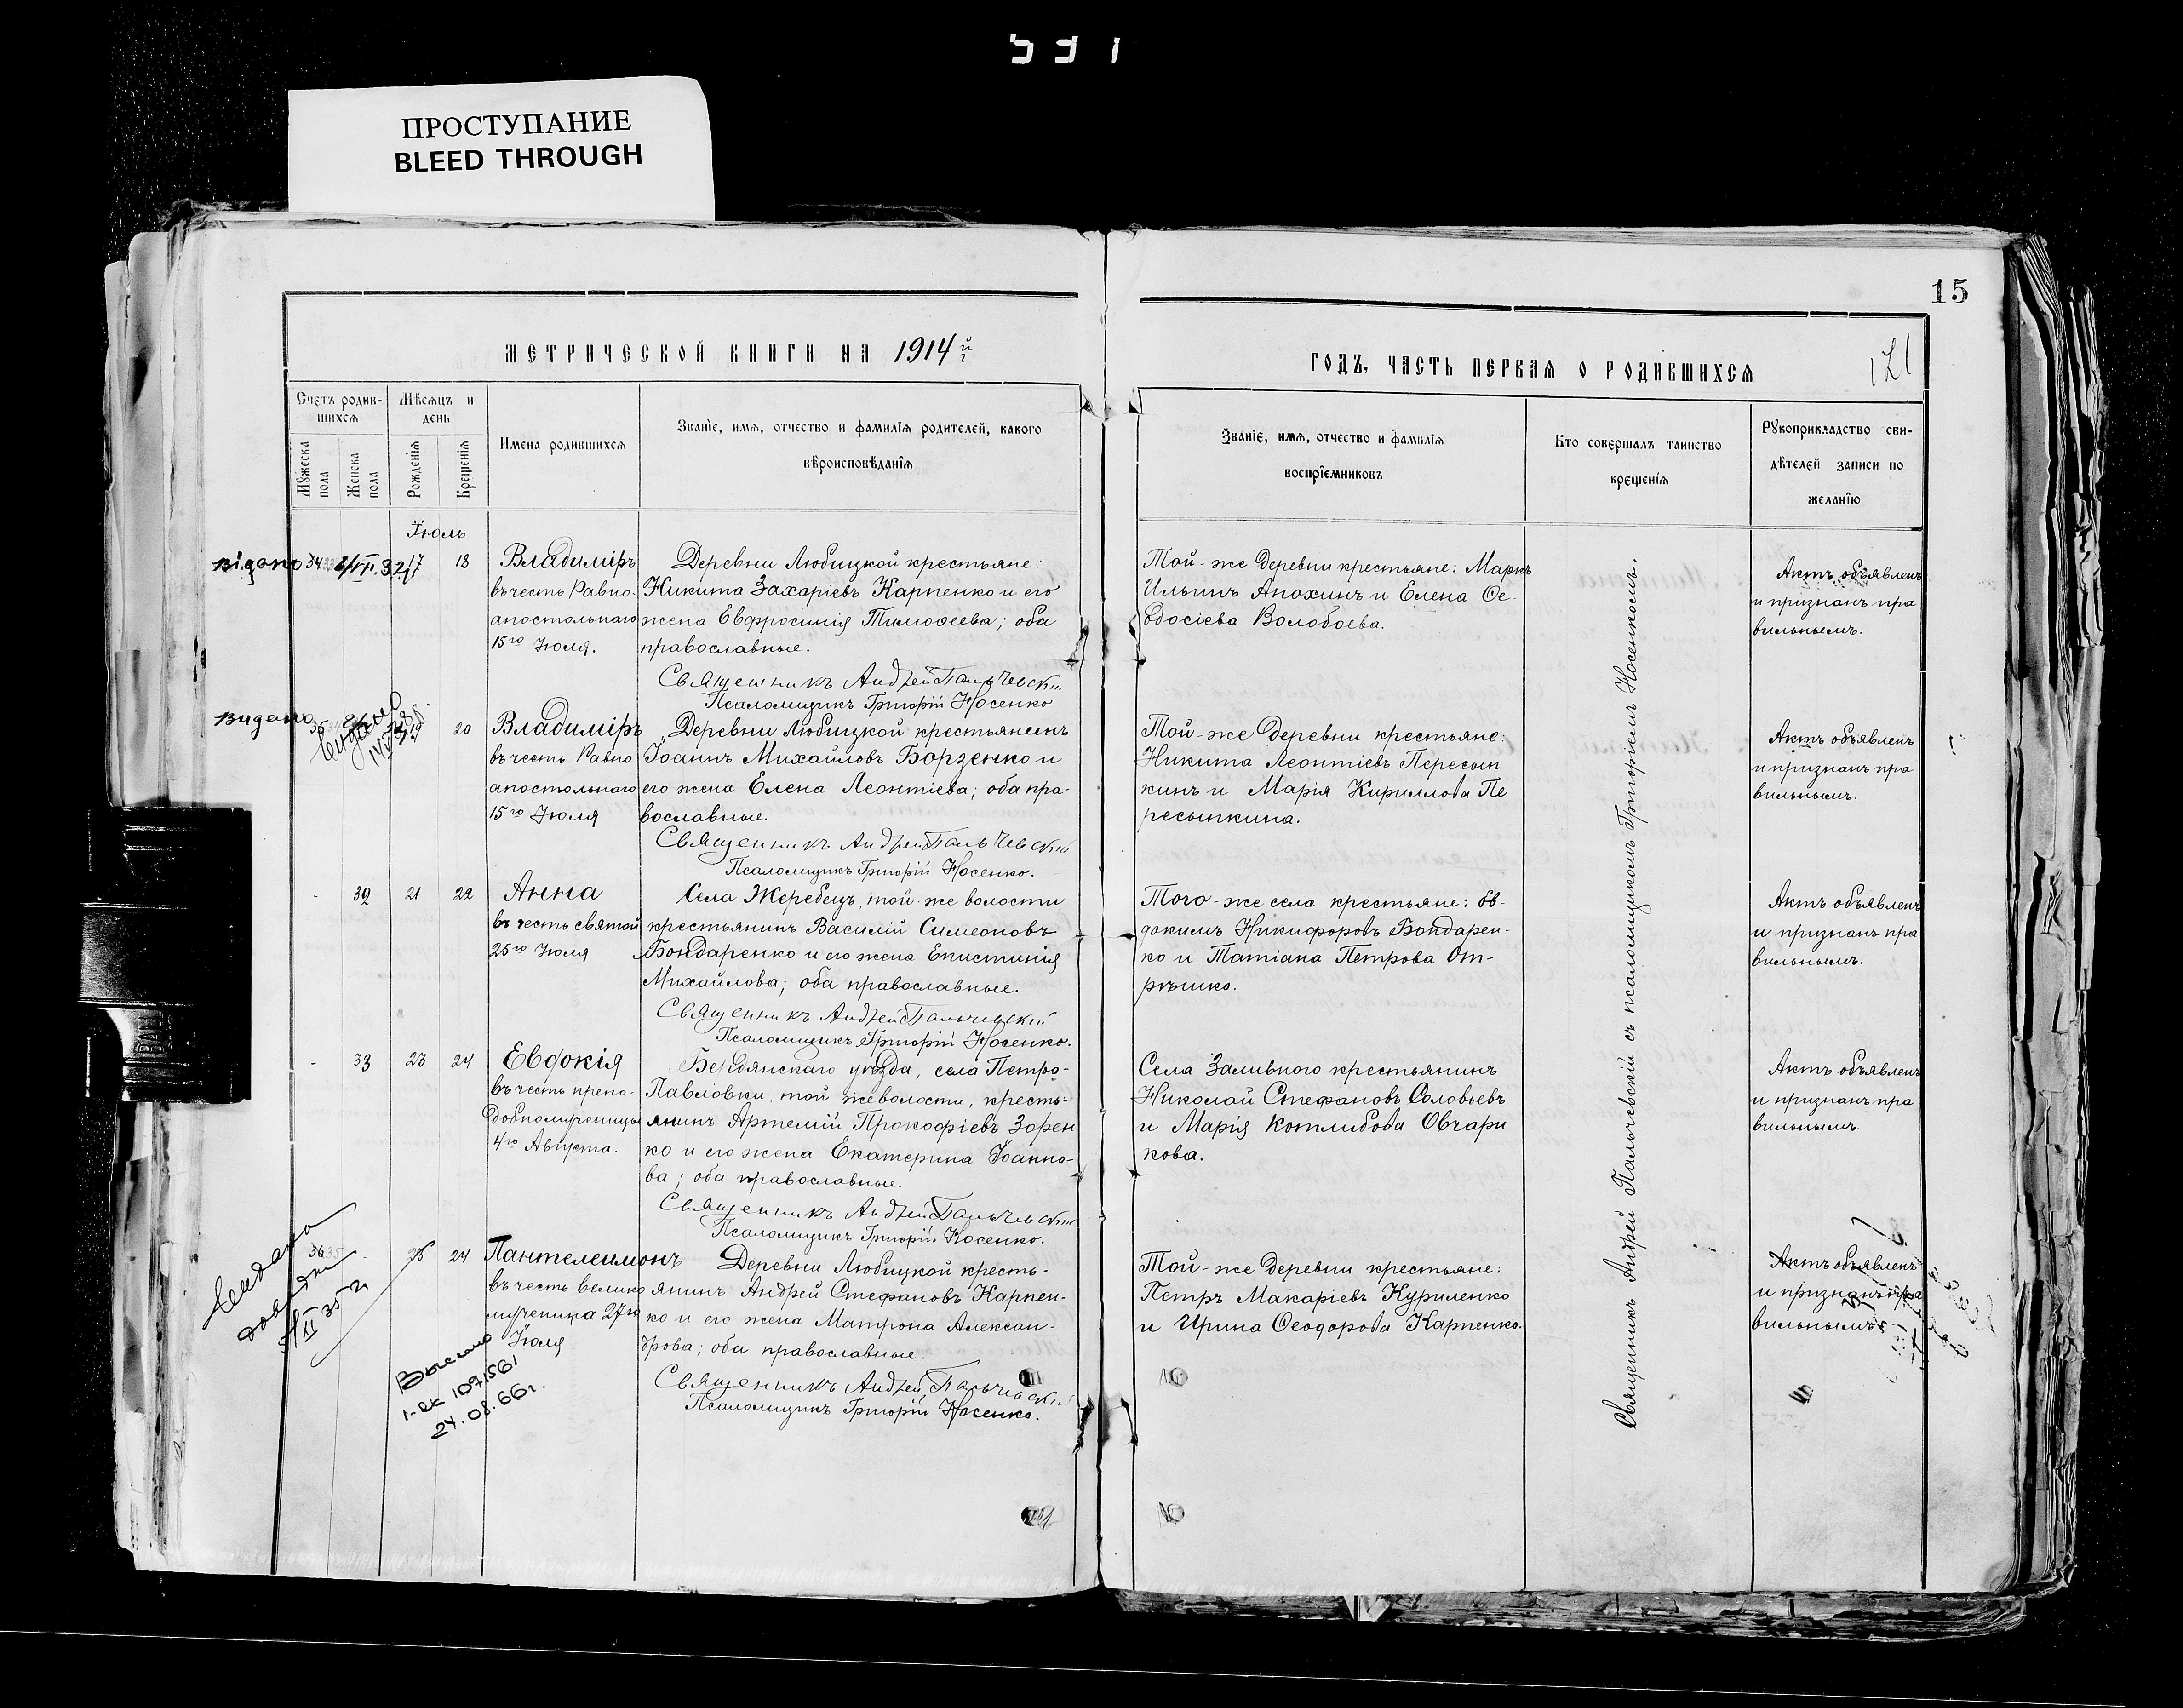 531
ПРОСТУПАНИЕ
BLEED THROUGH
15
МЕТРИЧЕСКОЙ КНИГИ НА 1914 й г
ГОДЪ, ЧАСТЬ ПЕРВАЯ О РОДИВШИХСЯ
121
Счетъ родив-
шихся
Мѣсяцъ и
день
Мужеска
пола
Женска
пола
Рожденія
Крещенія
Имена родившихся
Званіе, имя, отчество и фамилія родителей, какого
вѣроисповѣданія
Званіе, имя, отчество и фамилія
воспріемниковъ
Кто совершалъ таинство
крещенія
Рукоприкладство сви-
дѣтелей записи по
желанію
Іюль
видано
34
17
18
Владиміръ
въ честь Равно-
апостольнаго
15го Іюля.
Деревни Любицкой крестьяне:
Никита Захаріевъ Карпенко и его
жена Евфросинія Тимоѳеева; оба
православные.
Священникъ Андрей Пальчевскій
Псаломщикъ Григорій Носенко
Той-же деревни крестьяне: Маркъ
Ильинъ Анохинъ и Елена Ѳе-
одосіева Волобоева.
Актъ объявленъ
и признанъ пра
вильнымъ.
видано
19
20
Владиміръ
въ честь Равно
апостольнаго
15го Іюля
Деревни Любицкой крестьянинъ
Іоаннъ Михайловъ Борзенко и
его жена Елена Леонтіева; оба пра-
вославные.
Священникъ Андрей Пальчевскій
Псаломщикъ Григорій Носенко.
Той-же деревни крестьяне:
Никита Леонтіевъ Пересып
кинъ и Марія Кириллова Пе
ресыпкина.
Актъ объявленъ
и признанъ пра
вильнымъ.
-
32
21
22
Анна
въ честь святой
25го Іюля
Села Жеребецъ, той-же волости
крестьянинъ Василій Симеоновъ
Бондаренко и его жена Епистинія
Михайлова; оба православные.
Священникъ Андрей Пальчевскій
Псаломщикъ Григорій Носенко.
Того-же села крестьяне: Ев-
докимъ Никифоровъ Бондарен-
ко и Татіана Петрова От-
рѣшко.
Актъ объявленъ
и признанъ пра
вильнымъ.
-
33
23
24
Евдокія
въ честь препо-
добномученицы
4го Августа.
Бердянскаго уѣзда, села Петро-
Павловки, той же волости, кресть-
янинъ Артемій Прокофіевъ Зорен
ко и его жена Екатерина Іоанно-
ва; оба православные.
Священникъ Андрей Пальчевскій
Псаломщикъ Григорій Носенко.
Села Заливного крестьянинъ
Николай Стефановъ Соловьевъ
и Марія Котлибова Овчари
кова.
Актъ объявленъ
и признанъ пра
вильнымъ.
36
-
24
Пантелеимонъ
въ честь велико
мученика 27го
Іюля
Деревни Любицкой кресть-
янинъ Андрей Стефановъ Карпен-
ко и его жена Матрона Алексан-
дрова; оба православные.
Священникъ Андрей Пальчевскій
Псаломщикъ Григорій Носенко.
Той-же деревни крестьяне:
Петръ Макаріевъ Куриленко
и Ирина Ѳеодорова Карпенко.
Актъ объявленъ
и признанъ пра
вильнымъ
Выслано
24.08.66г.
Священникъ Андрей Пальчевскій съ псаломщикомъ Григоріемъ Носенкомъ.